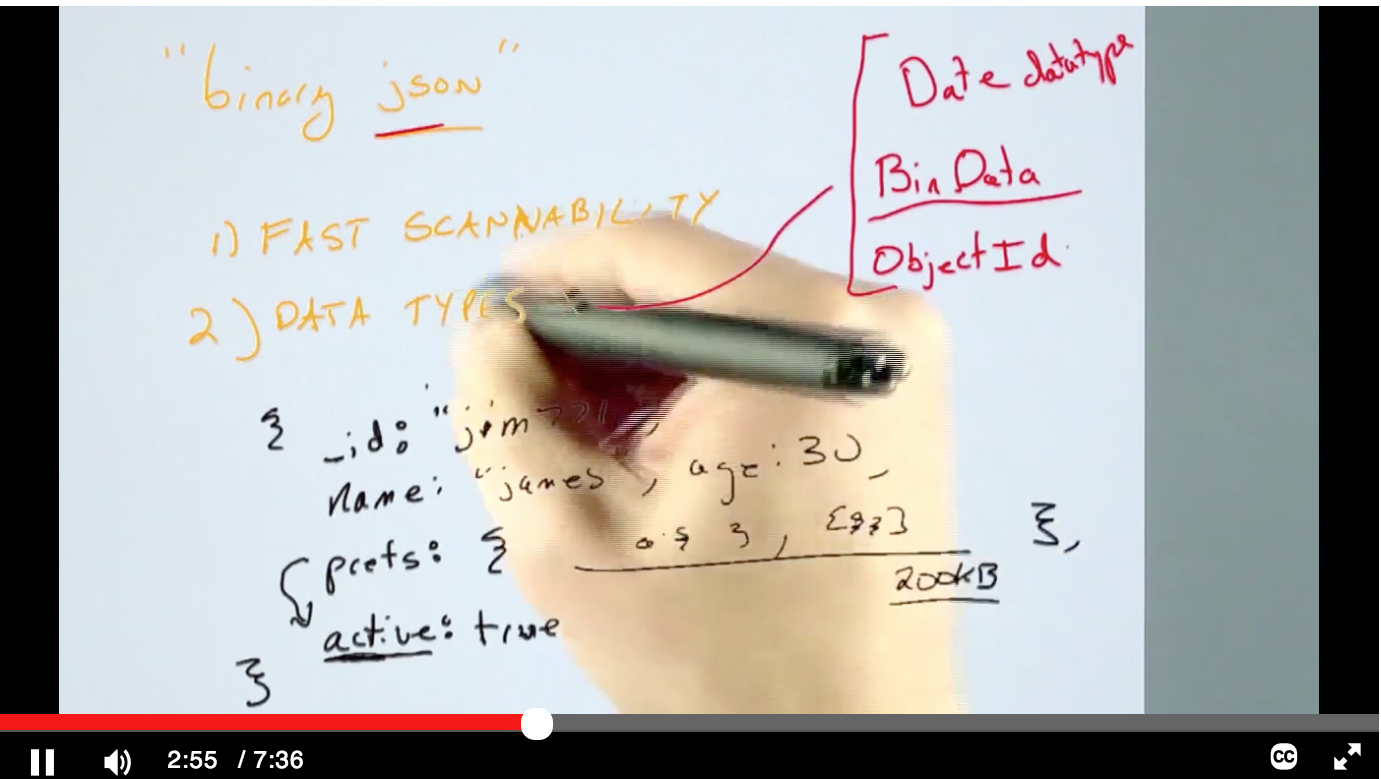 "binary json"
1) FAST SCANNABILITY
2) DATA TYPES
Date datatype
BinData
ObjectId
{ _id: "jim
name: "james", age: 30,
prefs: { },
200kB
active: true
}
2:55 / 7:36
CC